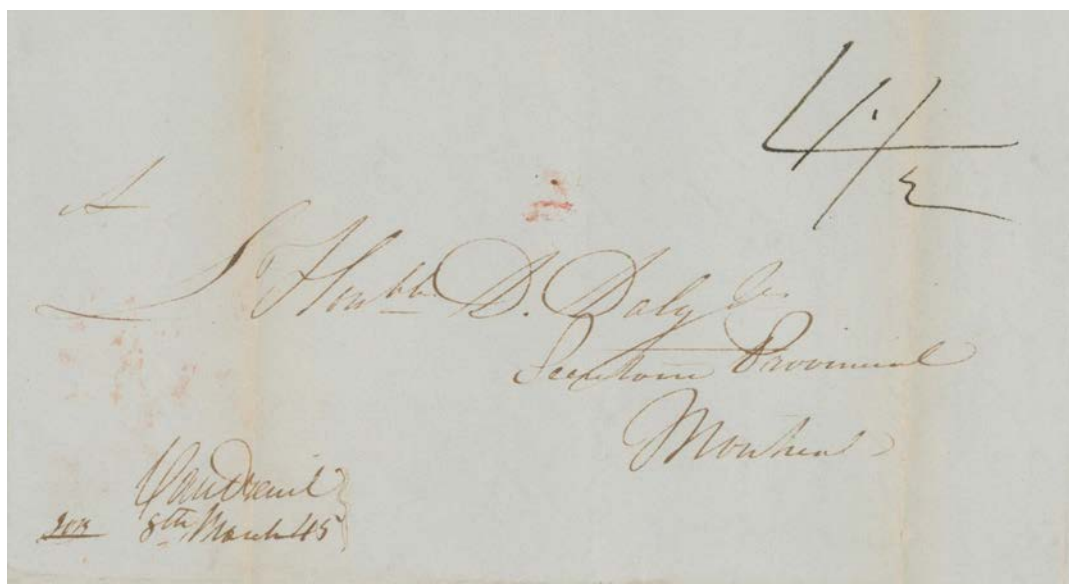 4 1/2
A
L'Honble. D. Daly
Secretaire Provincial
Montreal
Vaudreuil
8th March 45